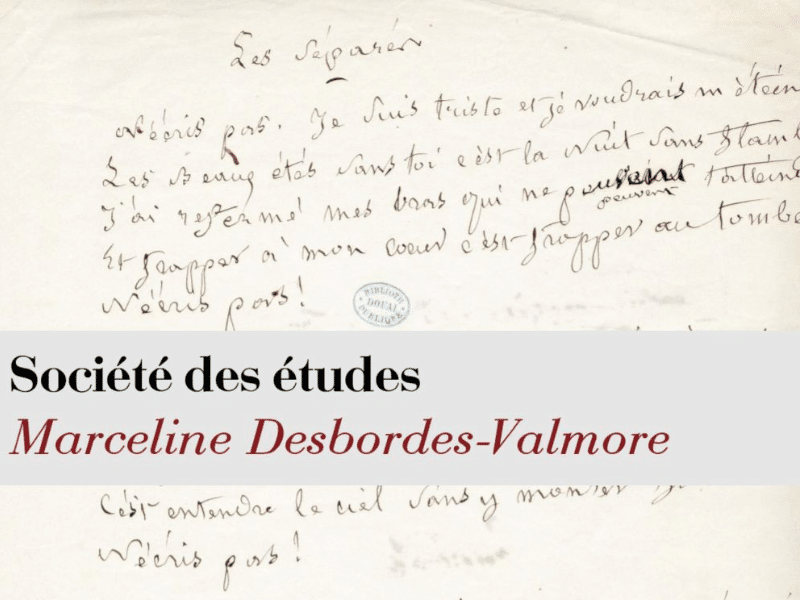 Les séparés
N'écris pas. Je suis triste et je voudrais m'étein
Les Beaux étés sans toi c'est la nuit sans flamb
J'ai refermé mes bras qui ne peuvent t'attein
peuvent
Et frapper à mon cœur c'est frapper au tombe
N'écris pas!
BIBLIOTH
DOUAI
PUBLIQUE
Société des études
Marceline Desbordes-Valmore
C'est entendre le ciel sans y monter
N'écris pas!